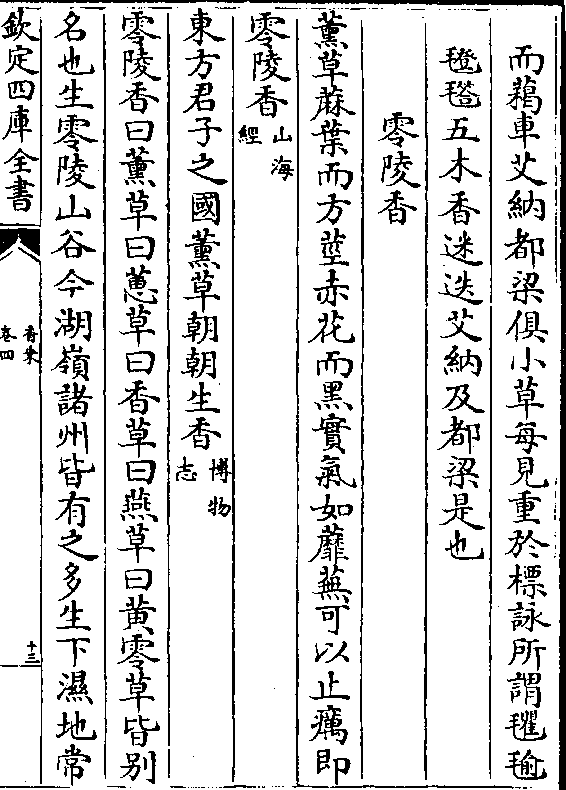 而藒車艾納都梁俱小草每見重於標詠所謂氍毹
㲪㲮五木香迷迭艾納及都梁是也
零陵香
薰草蔴葉而方莖赤花而黑實氣如蘼蕪可以止癘即
零陵香山海經
東方君子之國薰草朝朝生香博物志
零陵香曰薰草曰蕙草曰香草曰燕草曰黄零草皆别
名也生零陵山谷今湖嶺諸州皆有之多生下濕地常
欽定四庫全書
香乗
卷四
十三